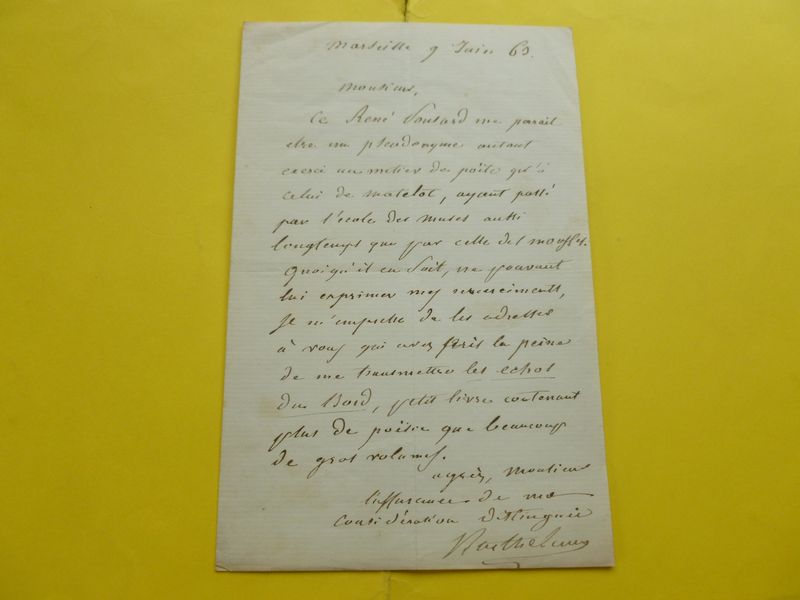 Marseille 9 Juin 63.
Monsieur,
Ce René Ponsard me parait
etre un pseudonyme autant
exercé au métier de poëte qu'à
celui de matelot, ayant passé
par l'école des muses aussi
longtemps que par celle des mousses.
Quoiqu'il en soit, ne pouvant
lui exprimer mes remerciments,
je m'empresse de les adresser
à vous qui avez pris la peine
de me transmettre les echos
du Bord, petit livre contenant
plus de poësie que beaucoup
de gros volumes.
agréez, Monsieur
l'assurance de ma
considération distinguée
Barthelemy